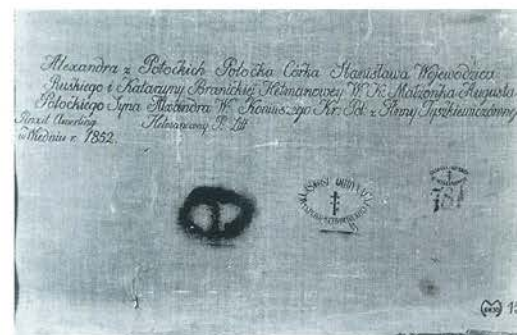 Alexandra z Potockich Potocka Córka Stanisława Wojewodzica
Ruskiego i Katarzyny Branickiej Hetmanowey W. K. Małżonka Augusta
Potockiego Syna Alexandra W. Koniuszego Kr. Pol. z Anny Tyszkiewiczówny
Hetmanowny P. Litt
Pinxit Amerling
w Wiedniu r. 1852.
787
15